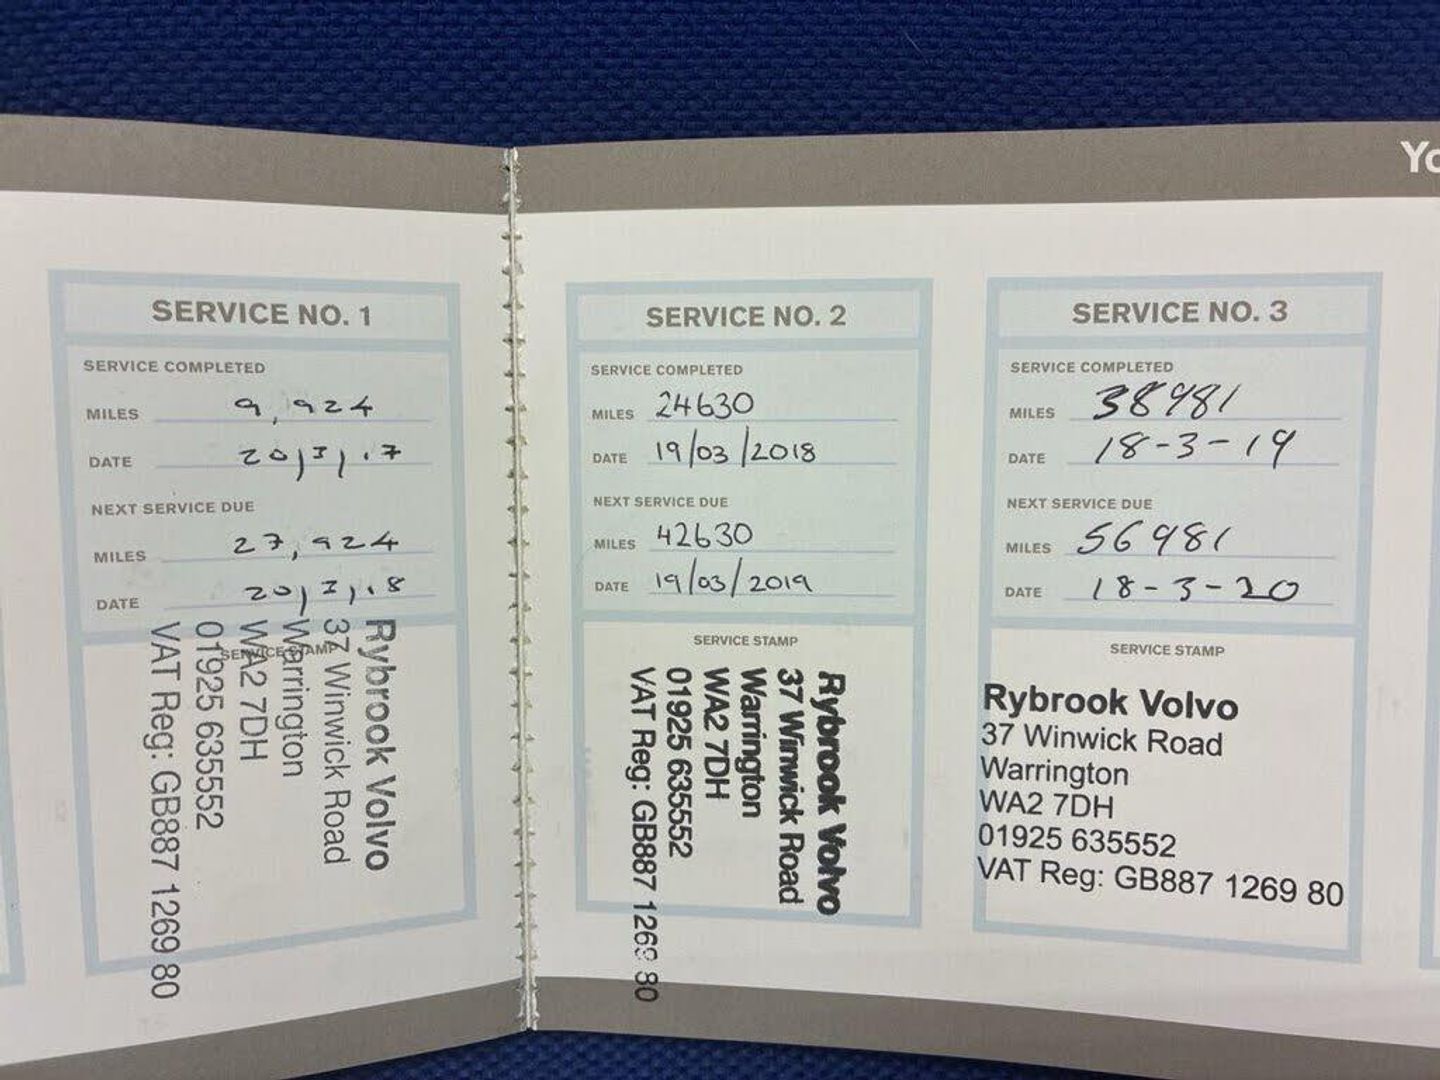 Yo
SERVICE NO. 1
SERVICE COMPLETED
MILES 9,924
DATE 20/3/17
NEXT SERVICE DUE
MILES 27,924
DATE 20/3/18
SERVICE STAMP
Rybrook Volvo
37 Winwick Road
Warrington
WA2 7DH
01925 635552
VAT Reg: GB887 1269 80
SERVICE NO. 2
SERVICE COMPLETED
MILES 24630
DATE 19/03/2018
NEXT SERVICE DUE
MILES 42630
DATE 19/03/2019
SERVICE STAMP
Rybrook Volvo
37 Winwick Road
Warrington
WA2 7DH
01925 635552
VAT Reg: GB887 1269 80
SERVICE NO. 3
SERVICE COMPLETED
MILES 38981
DATE 18-3-19
NEXT SERVICE DUE
MILES 56981
DATE 18-3-20
SERVICE STAMP
Rybrook Volvo
37 Winwick Road
Warrington
WA2 7DH
01925 635552
VAT Reg: GB887 1269 80